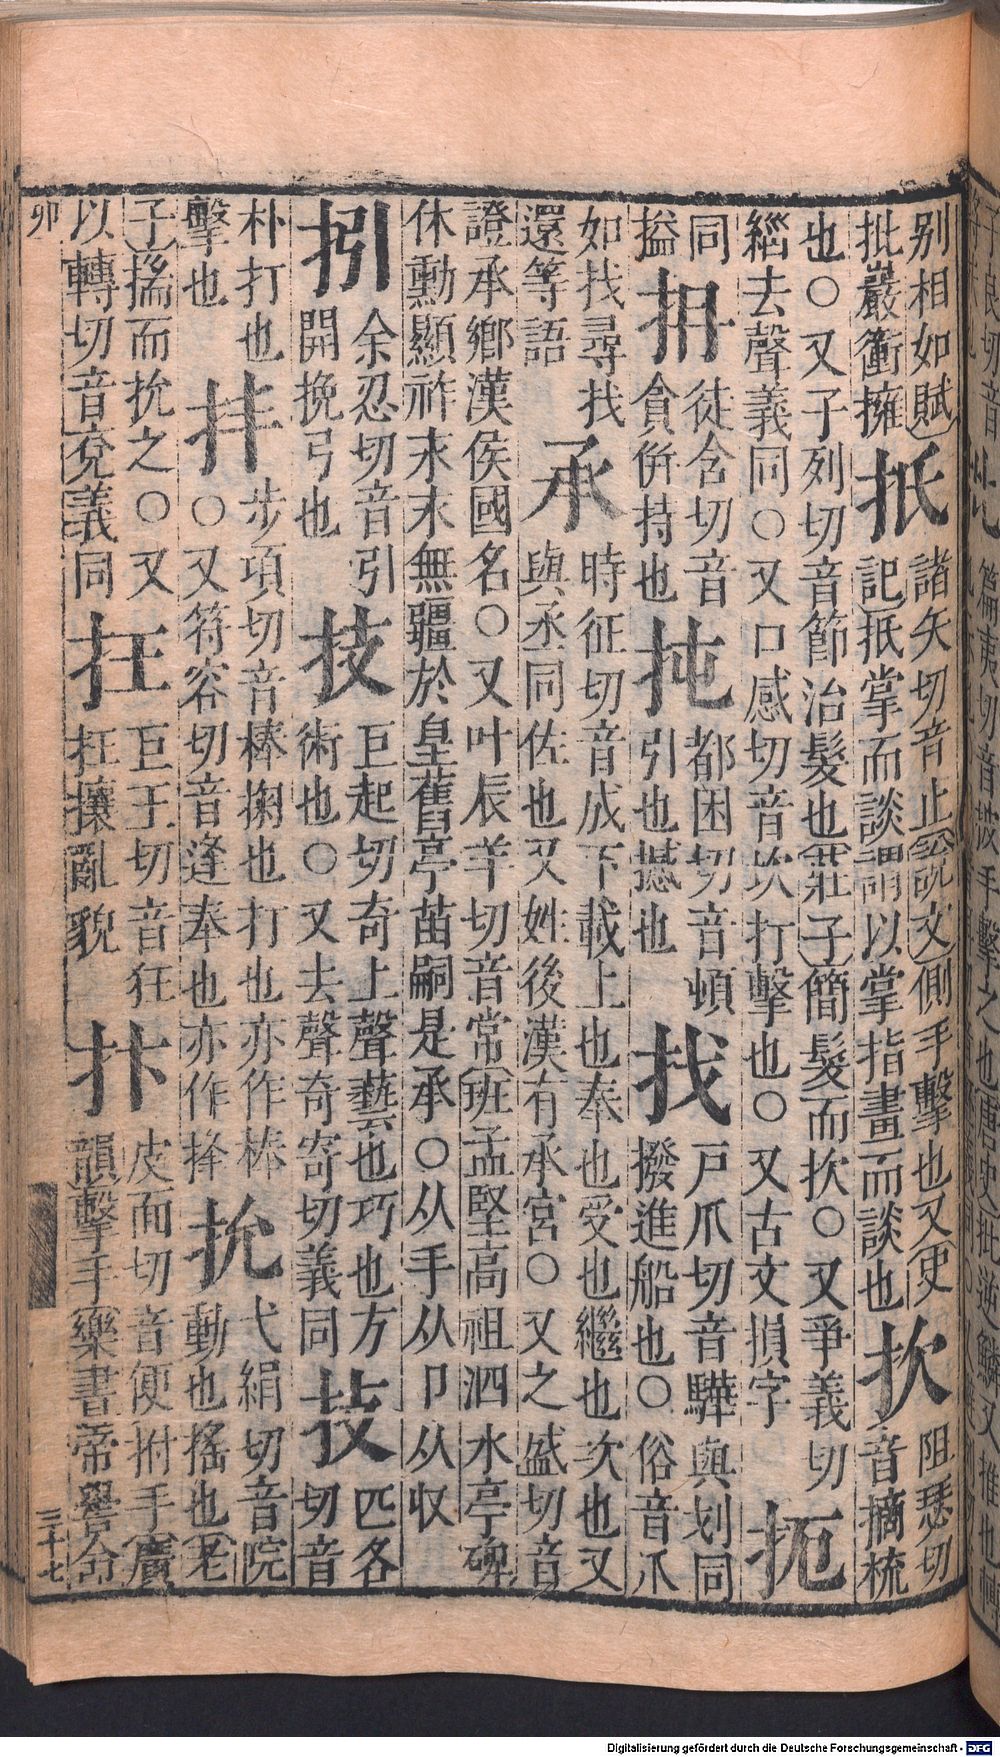 別相如賦
批巖衝擁
抵
諸矢切音止說文側手擊也又史
記抵掌而談謂以掌指畫而談也
扻
阻瑟切
音摘梳
也○又子列切音節治髮也莊子簡髮而扻○又爭義切
緇去聲義同○又口感切音坎打擊也○又古文損字
扼
同
搤
抩
徒含切音
貪倂持也
扽
都困切音頓
引也撼也
找
戸爪切音驊與划同
撥進船也○俗音爪
如找尋找
還等語
承
時征切音成下載上也奉也受也繼也次也又
與丞同佐也又姓後漢有承宮○又之盛切音
證承鄉漢侯國名○又叶辰羊切音常班孟堅高祖泗水亭碑
休勳顯祚永永無疆於皇舊亭苗嗣是承○从手从卩从収
㧈
余忍切音引
開挽弓也
技
巨起切奇上聲藝也巧也方
術也○又去聲奇寄切義同
㧊
匹各
切音
朴打也
擊也
步項切音棒掬也打也亦作棒
○又符容切音逢奉也亦作捧
抁
弋絹切音院
動也搖也老
子揣而抁之○又
以轉切音兗義同
抂
巨王切音狂
抂攘亂貌
抃
皮面切音便拊手廣
韻擊手樂書帝嚳命
卯
三十七
Digitalisierung gefördert durch die Deutsche Forschungsgemeinschaft - DFG